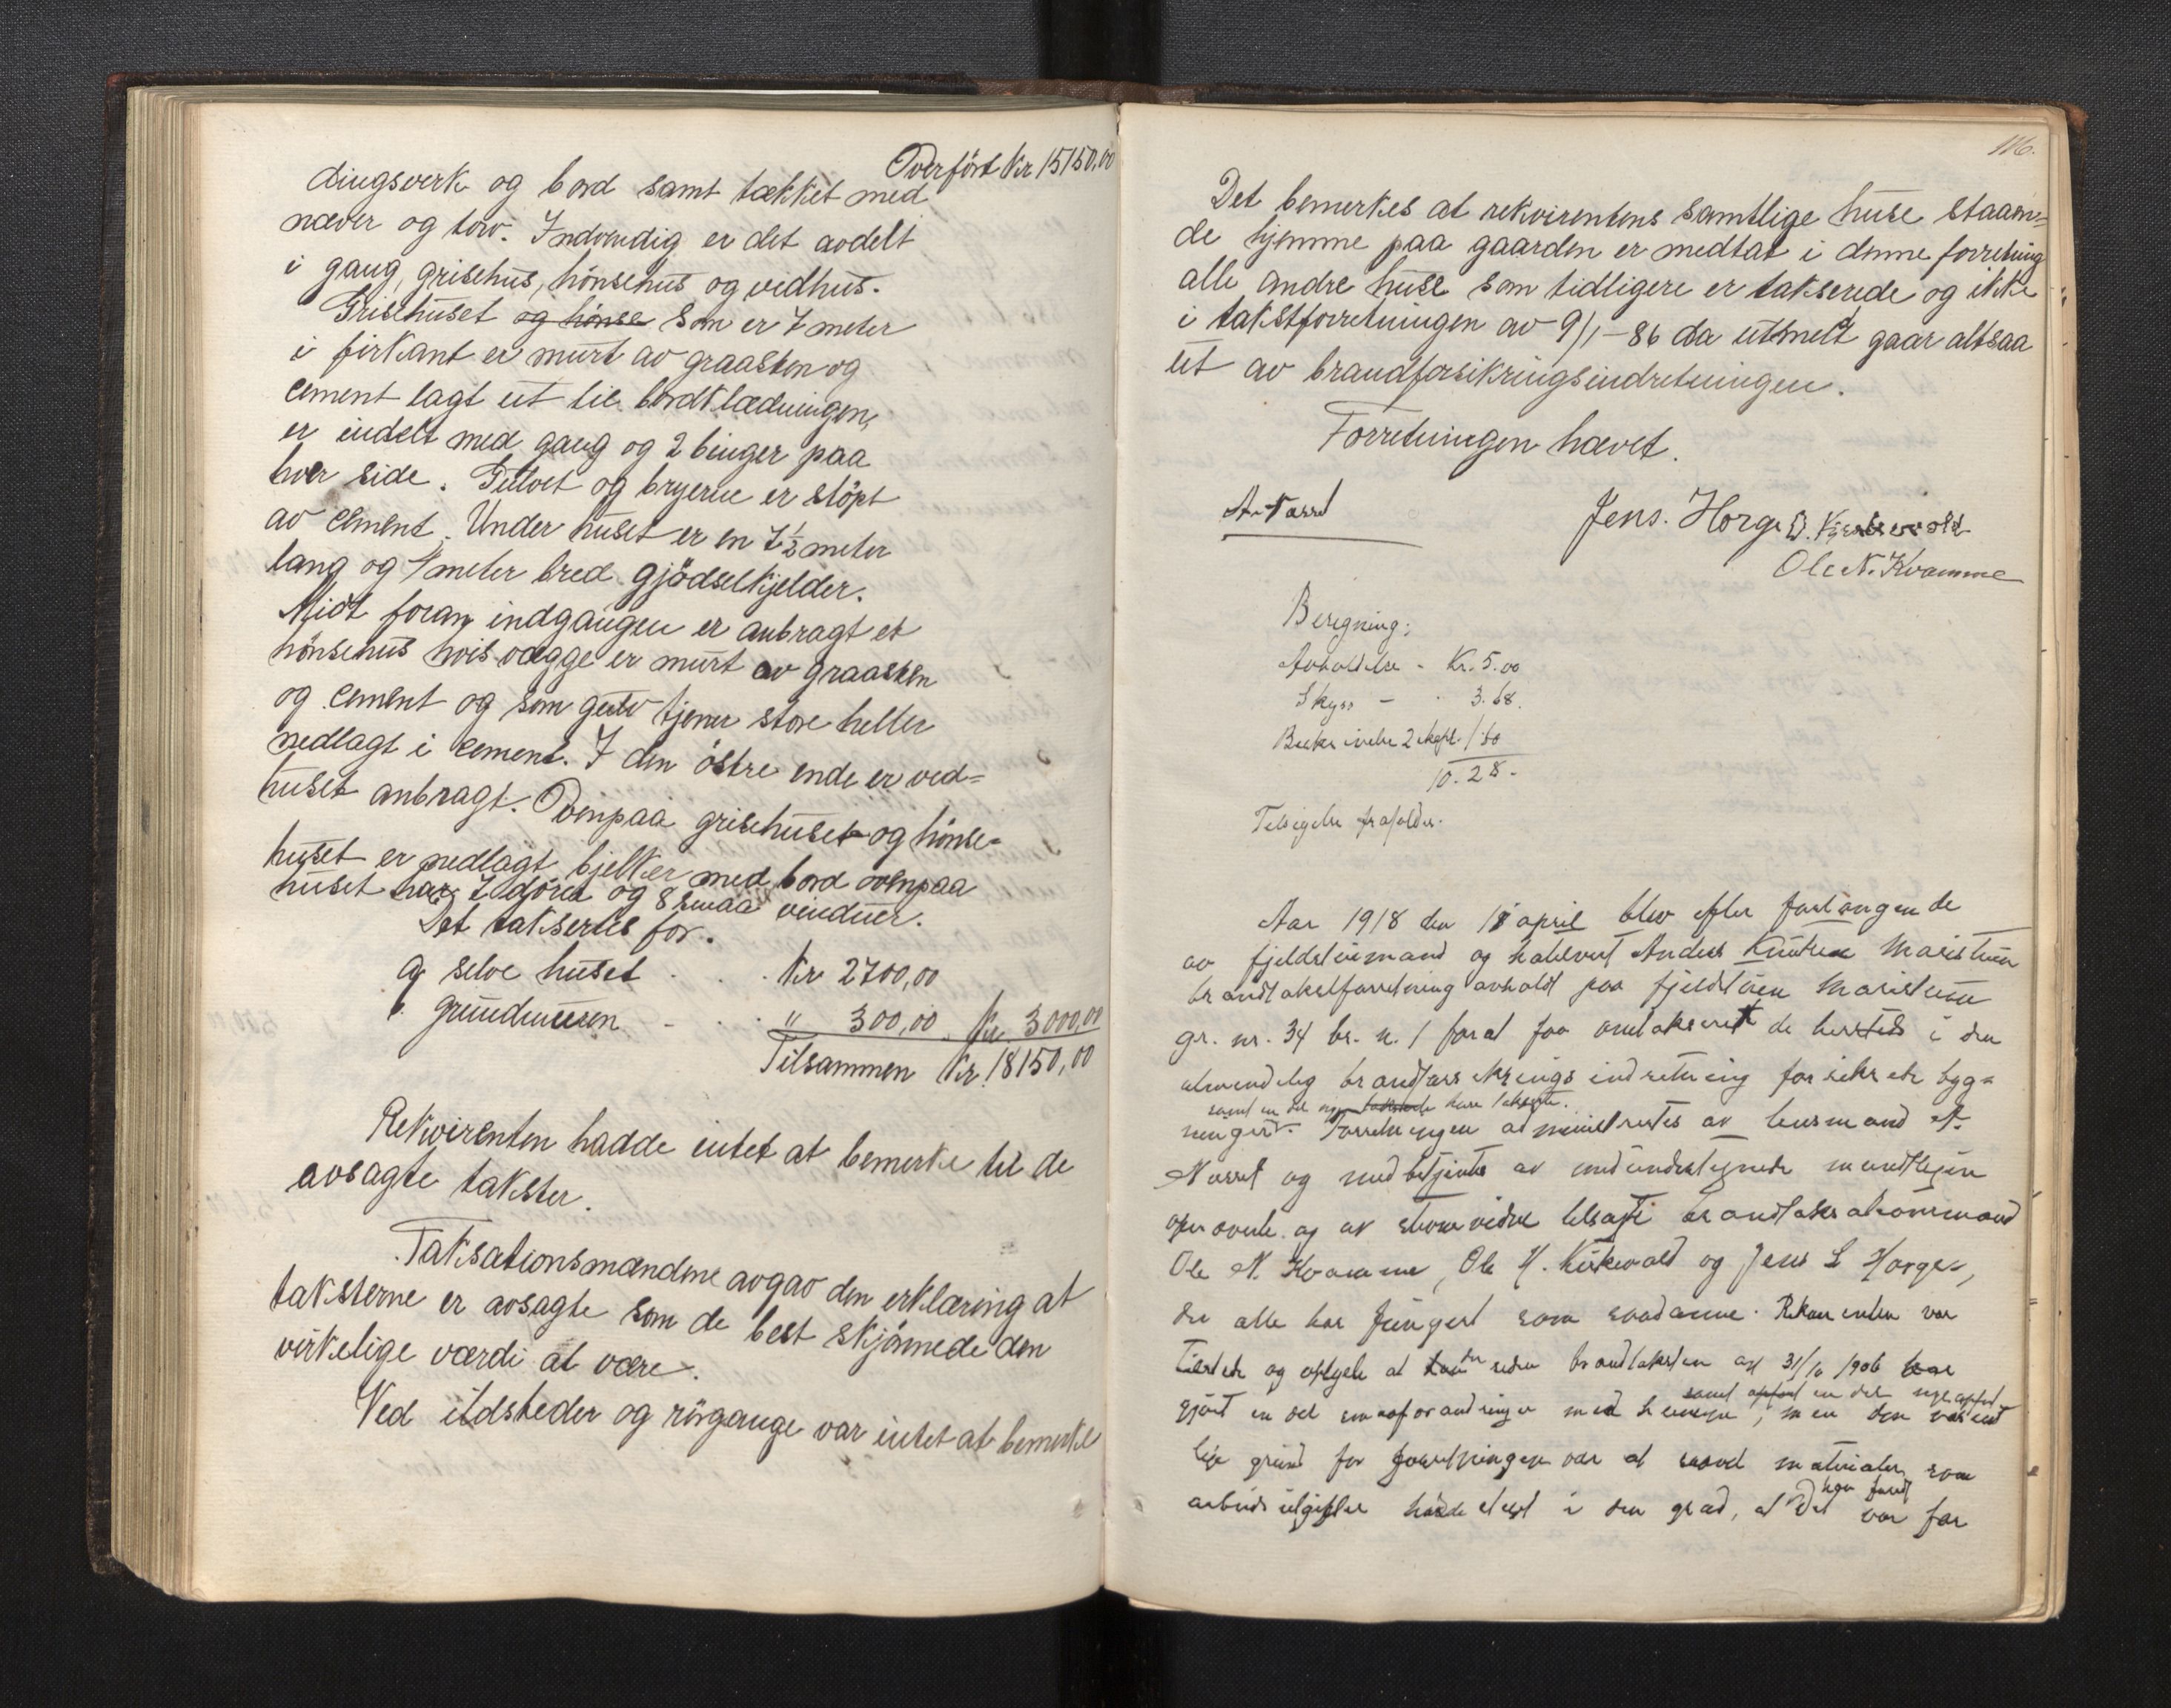 Overført Kr 15150,00
dingsverk og bord samt tækket med
næver og torv. Indvendig er det avdelt
i gang, grisehus, hönsehus og vedhus.
Grisehuset og hönse som er 7 meter
i firkant er murt av graasten og
cement lagt ut til bordklædningen,
er indelt med gang og 2 binger paa
hver side. Gulvet og bryerne er stöpt
av cement. Under huset er en 7½ meter
lang og 4 meter bred gjödselkjelder.
Midt foran indgangen er anbragt et
hönsehus hvis vægge er murt av graasten
og cement og som gulv tjener store heller
nedlagt i cement. I den östre ende er ved=
huset anbragt. Ovenpaa grisehuset og hönse=
huset er nedlagt bjelker med bord ovenpaa
huset har 7 dörer og 8 smaa vinduer.
Det takseres for.
a, selve huset . . . Kr 2700,00
b. grundmuren - . . " 300,00 Kr. 3000,00
Tilsammen Kr. 18150,00
Rekvirenten hadde intet at bemerke til de
avsagte takster.
Taksationsmændene avgav den erklæring at
taksterne er avsagte som de best skjönnede den
virkelige værdi at være.
Ved ildsteder og rörgange var intet at bemerke
116.
Det bemerkes at rekvirentens samtlige huse staaen=
de hjemme paa gaarden er medtat i denne forretning
alle andre huse som tidligere er takserede og ikke
i takstforretningen av 9/1-86 da utmelt gaar altsaa
ut av brandforsikringsindretningen.
Forretningen hævet.
Jens. Horge
Ole N. Kvamme
Beregning:
Avholdelse - Kr. 5.00
Skyss - . 3.68.
Beskrivelse 2 ekspl. 1.60
10.28.
Tilsigelse frafaldes.
Aar 1918 den april blev efter forlangende
av fjeldstuemand og Anders Knutsen Maristuen
brandtakstforretning avholdt paa fjeldstuen Maristuen
gr. nr. 34 br. n. 1 forat faa omtakseret de hersteds i den
almindelig brandforsikrings indretning forsikrede byg=
samt en del nye huse takserte.
ninger. Forretningen administrertes av lensmand A.
og medbetjentes av medundertegnede mundtlig
opnævnte og av tilsagte brandtakstmænd
Ole N. Kvamme, Ole H. Kirkevold og Jens L Horge,
der alle har fungert som saadanne. Rekvirenten var
tilstede og oplyste at der siden brandtaksten av 31/10 1906 har
samt opført en del nye
gjort en del smaaforandringer med husene, men den væsent
lige grund for forretningen var at saavel materialer som
arbeids utgifter hadde steget i den grad, at det var for